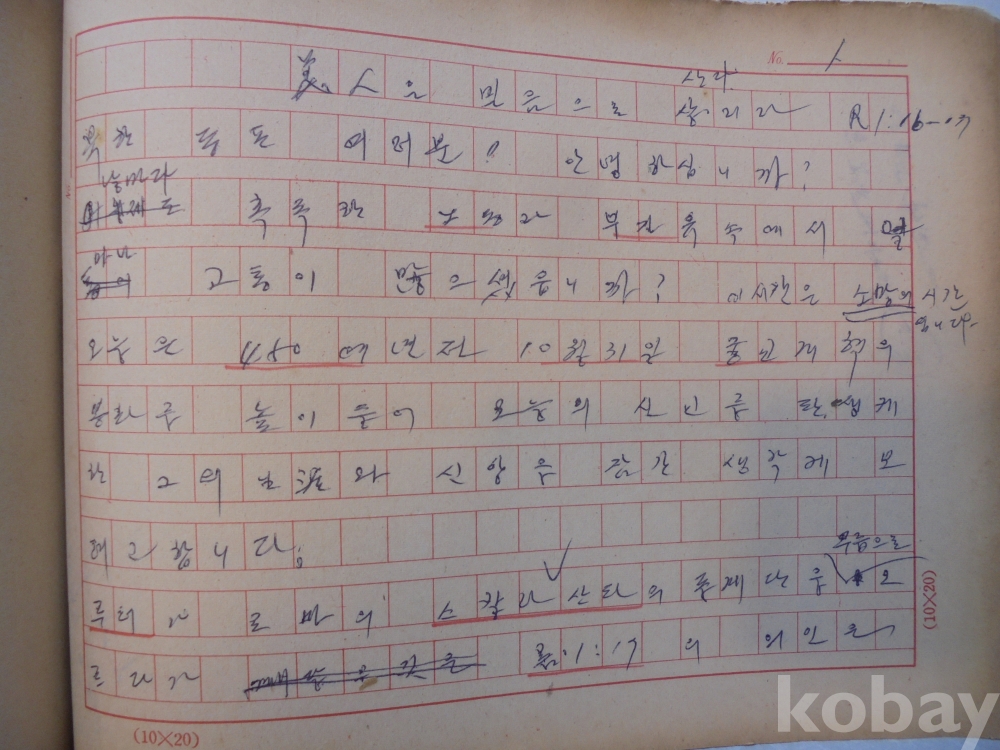 No. 1
산다
義人은 믿음으로 살리라 R 1:16-17
여러분! 안녕하십니까?
날마다
촉촉한 부한 속에서
마나
고통이 많으셨읍니까? 이 시간은 소망의 시간
입니다.
오늘은 480여년전 10월 31일 종교개혁의
봉화를 높이 들어 오늘의 신교를 탄생케
한 그의 신앙을 잠간 생각케 보
려고 합니다.
무릎으로
루터가 로마의 스칼라산타의 돌계단을 오
르다가 롬:1:17의 의인은
(10×20)
(10×20)
kobay